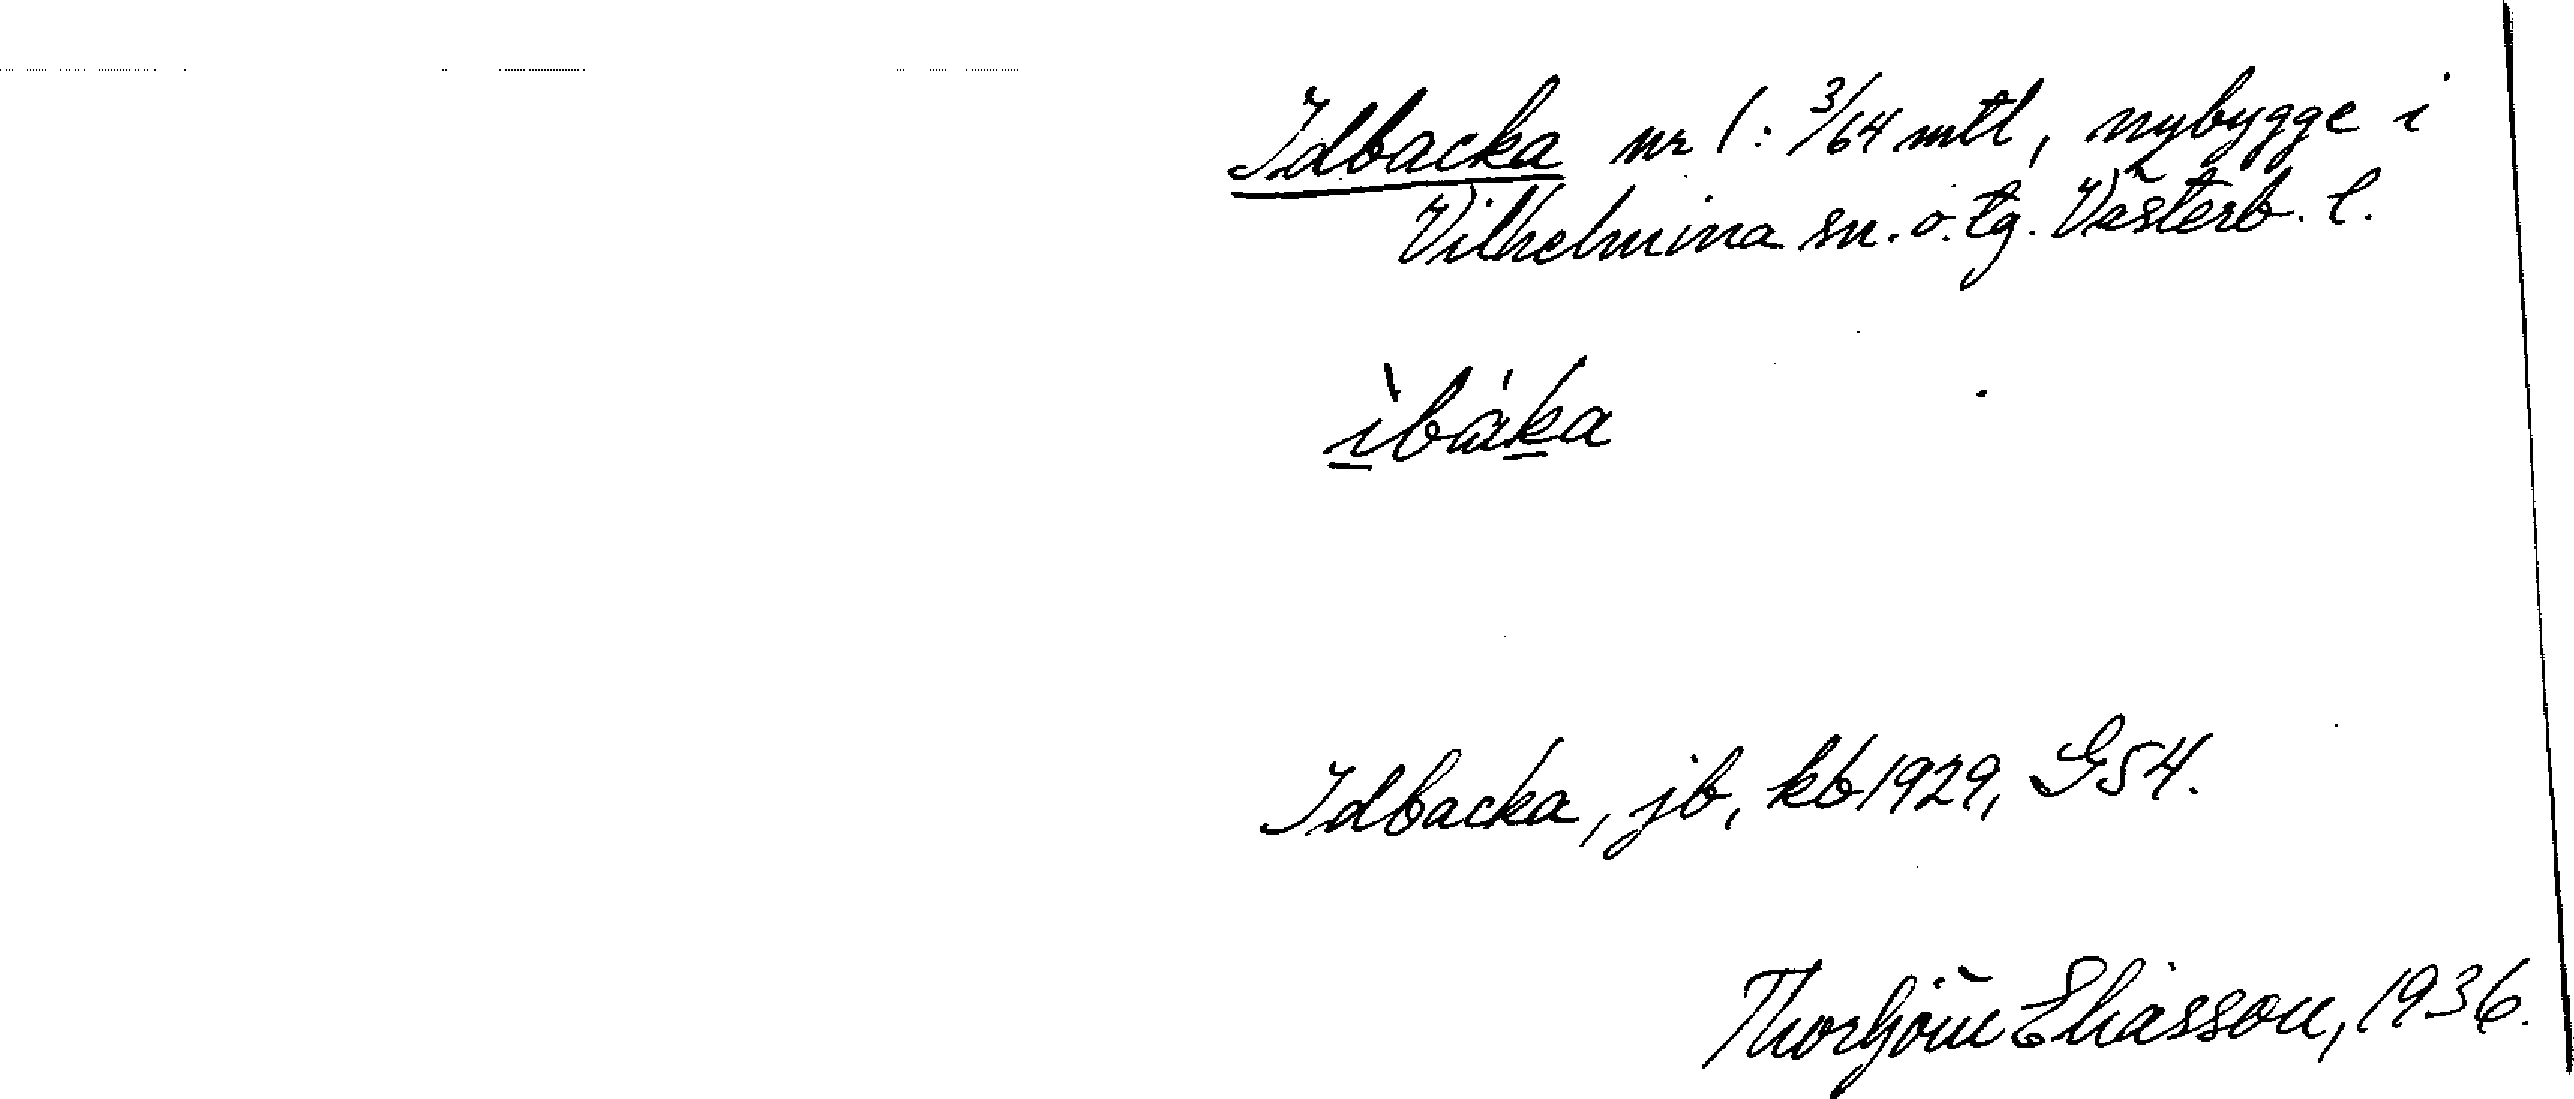 Idbacka nr 1: 3/64 mtl, nybygge i
Vilhelmina sn. o. tg. Västerb. l.
ìbáka
Idbacka, jb, kb 1929, GS4.
Thorbjörn Eliasson, 1936.